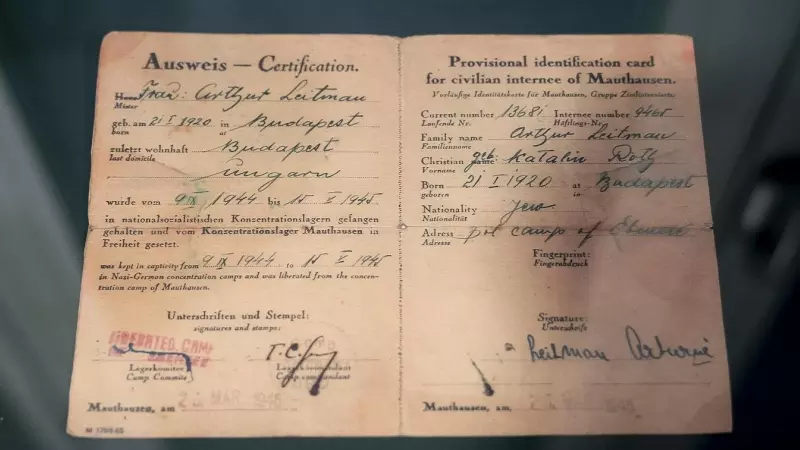 Ausweis — Certification.
Herr
Frau: Arthur Leitman
Mister
geb. am 21 I 1920 in Budapest
born at
zuletzt wohnhaft Budapest
last domicile
Ungarn
wurde vom 9 IX 1944 bis 15 V 1945
in nationalsozialistischen Konzentrationslagern gefangen
gehalten und vom Konzentrationslager Mauthausen in
Freiheit gesetzt.
was kept in captivity from 9 IX 1944 to 15 V 1945
in Nazi-German concentration camps and was liberated from the concen-
tration camp of Mauthausen.
Unterschriften und Stempel:
signatures and stamps:
LIBERATED CAMP
Lagerkomitee
Camp Committe
Lagerkommandant
Camp commandant
Mauthausen, am
Provisional identification card
for civilian internee of Mauthausen.
Vorläufige Identitätskarte für Mauthausen, Gruppe Zivilinternierte.
Current number 13681 Internee number 9465
Laufende Nr. Häftlings-Nr.
Family name Arthur Leitman
Familienname
Christian name: geb. Katalin Roth
Vorname
Born 21 I 1920 at Budapest
geboren in
Nationality Jew
Nationalität
Adress pol camp of
Adresse
Fingerprint:
Fingerabdruck
Signature:
Unterschrift
Leitman Arturné
Mauthausen, am,